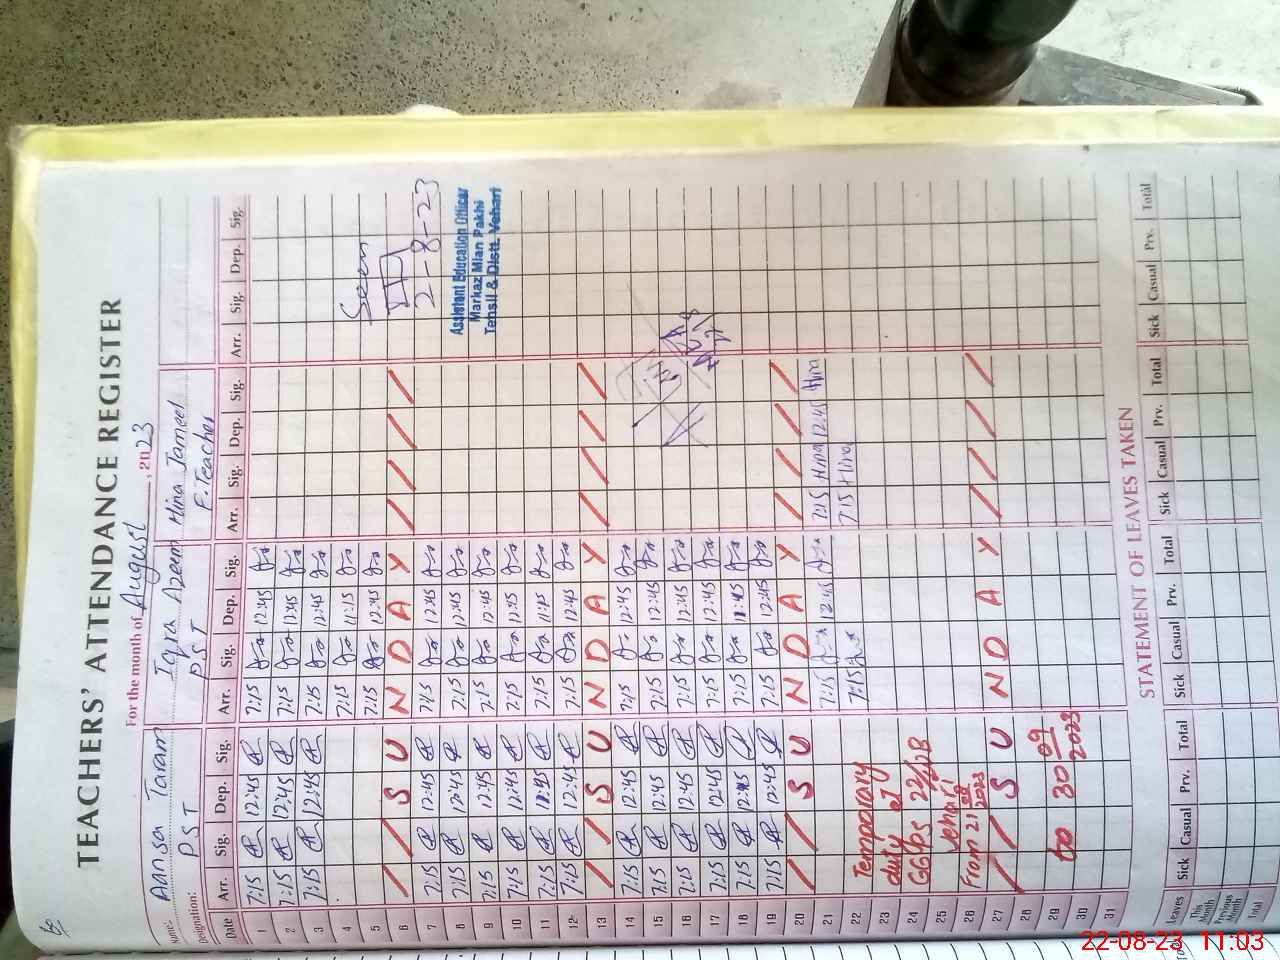 TEACHERS' ATTENDANCE REGISTER
For the month of August, 2023
Name: Aansa Taram Iqra Azeem Hina Jameel
Designation: P S T P.S.T F.Teacher
Date Arr. Sig. Dep. Sig. Arr. Sig. Dep. Sig. Arr. Sig. Dep. Sig. Arr. Sig. Dep. Sig.
1 7:15 12:45 7:15 12:45
2 7:15 12:45 7:15 12:45
3 7:15 12:45 7:15 12:45
4 7:15 11:15
5 7:15 12:45
6 S U N D A Y
7 7:15 12:45 7:15 12:45
8 7:15 12:45 7:15 12:45
9 7:15 12:45 7:15 12:45
10 7:15 12:45 7:15 12:15
11 7:15 7:15 11:15
12 7:15 12:45 7:15 12:45
13 S U N D A Y
14 7:15 12:45 7:15 12:45
15 7:15 12:45 7:15 12:45
16 7:15 12:45 7:15 12:45
17 7:15 12:45 7:15 12:45
18 7:15 7:15
19 7:15 12:45 7:15 12:45
20 S U N D A Y
21 7:15 12:45 7:15 Hina 12:45 Hina
22 7:15 7:15 Hina
23
24
25
26
27 S U N D A Y
28
29
30
31
Seen
2-8-23
Assistant Education Officer
Markaz Mian Pakhi
Tehsil & Distt. Vehari
Temporary
duty at
GGHPS 22/WB
vehari
From 21 08 2023
to 30 09 2023
STATEMENT OF LEAVES TAKEN
Leaves Sick Casual Prv. Total Sick Casual Prv. Total Sick Casual Prv. Total Sick Casual Prv. Total
This Month
Previous Month
Total
22-08-23 11:03